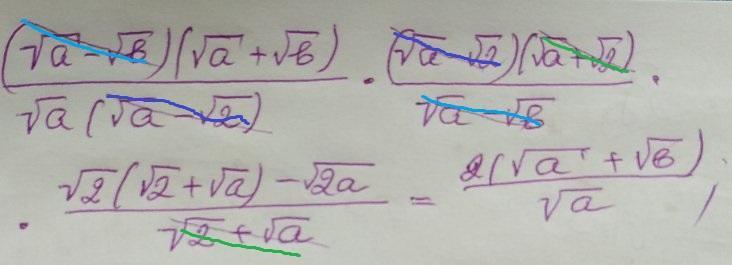 (√a - √b)(√a + √b) / √a (√a - √2) · (√a - √2)(√a + √2) / √a - √b ·
· √2(√2 + √a) - √2a / √2 + √a = 2(√a + √b) / √a ;